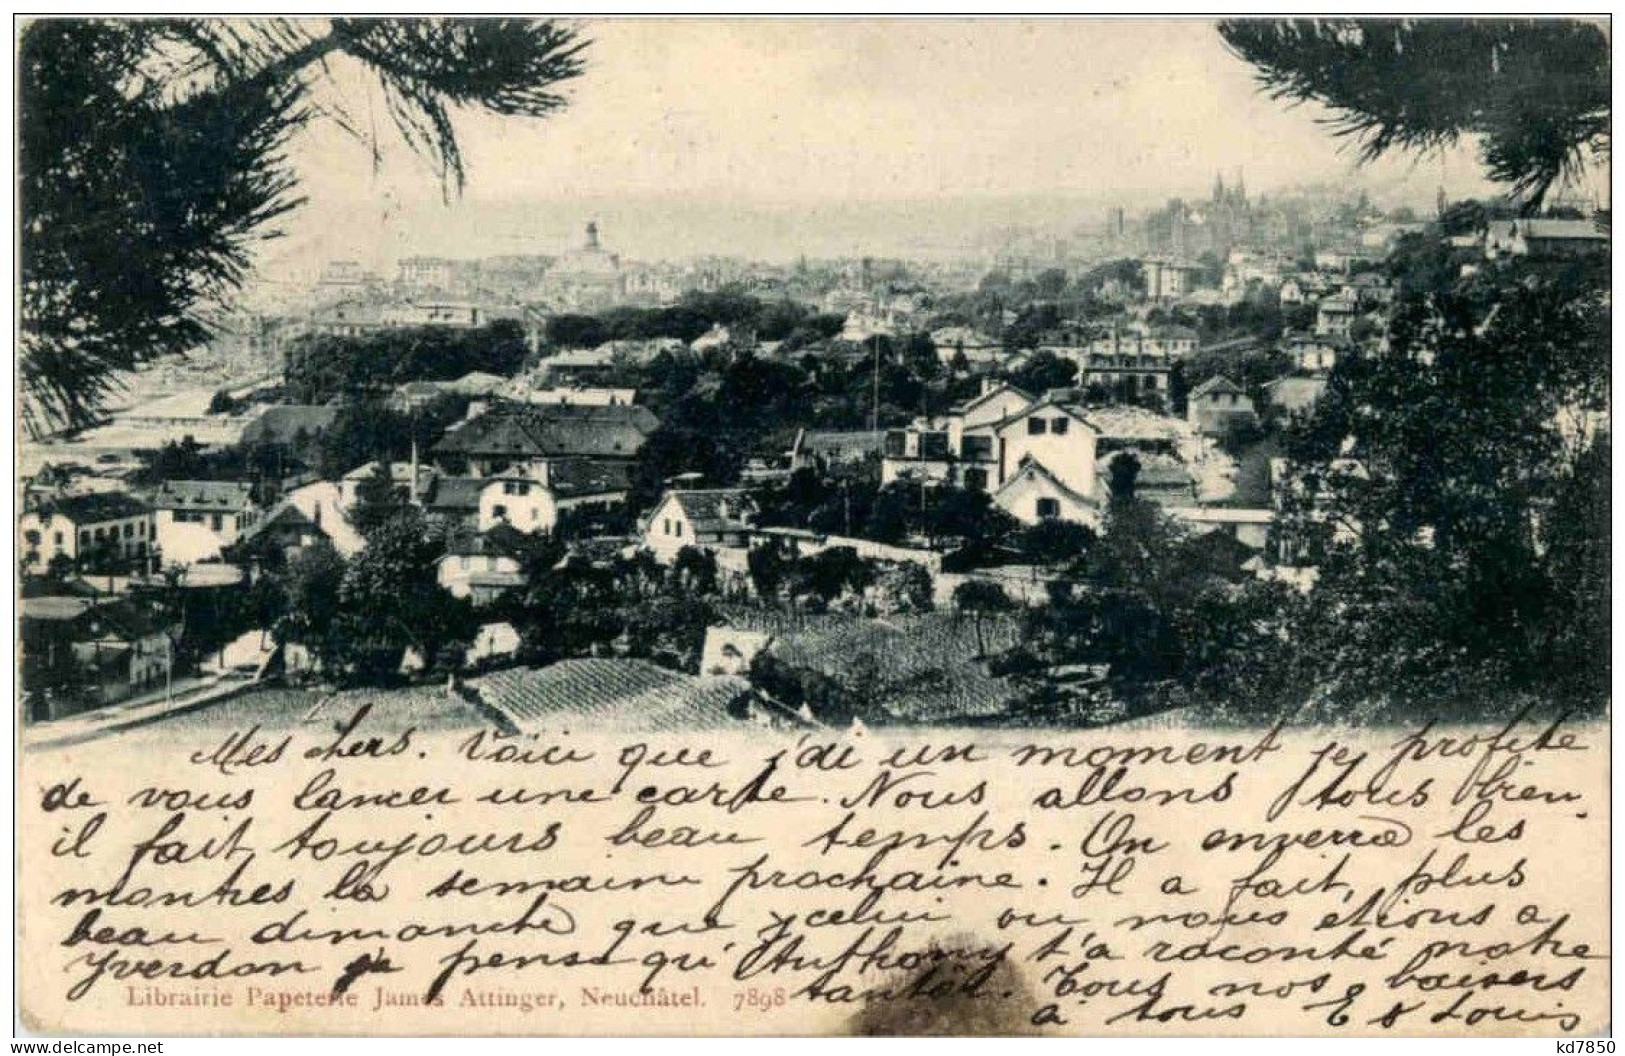 Mes chers. Voici que j'ai un moment je profite
de vous lancer une carte. Nous allons tous bien.
il fait toujours beau temps. On enverra les
montres la semaine prochaine. Il a fait plus
beau dimanche que celui ou nous étions a
Yverdon je pense qu'Anthony t'a raconté notre
tantôt. Tous nos baisers
à tous E & Louis
Librairie Papeterie James Attinger, Neuchâtel. 7898
kd7850